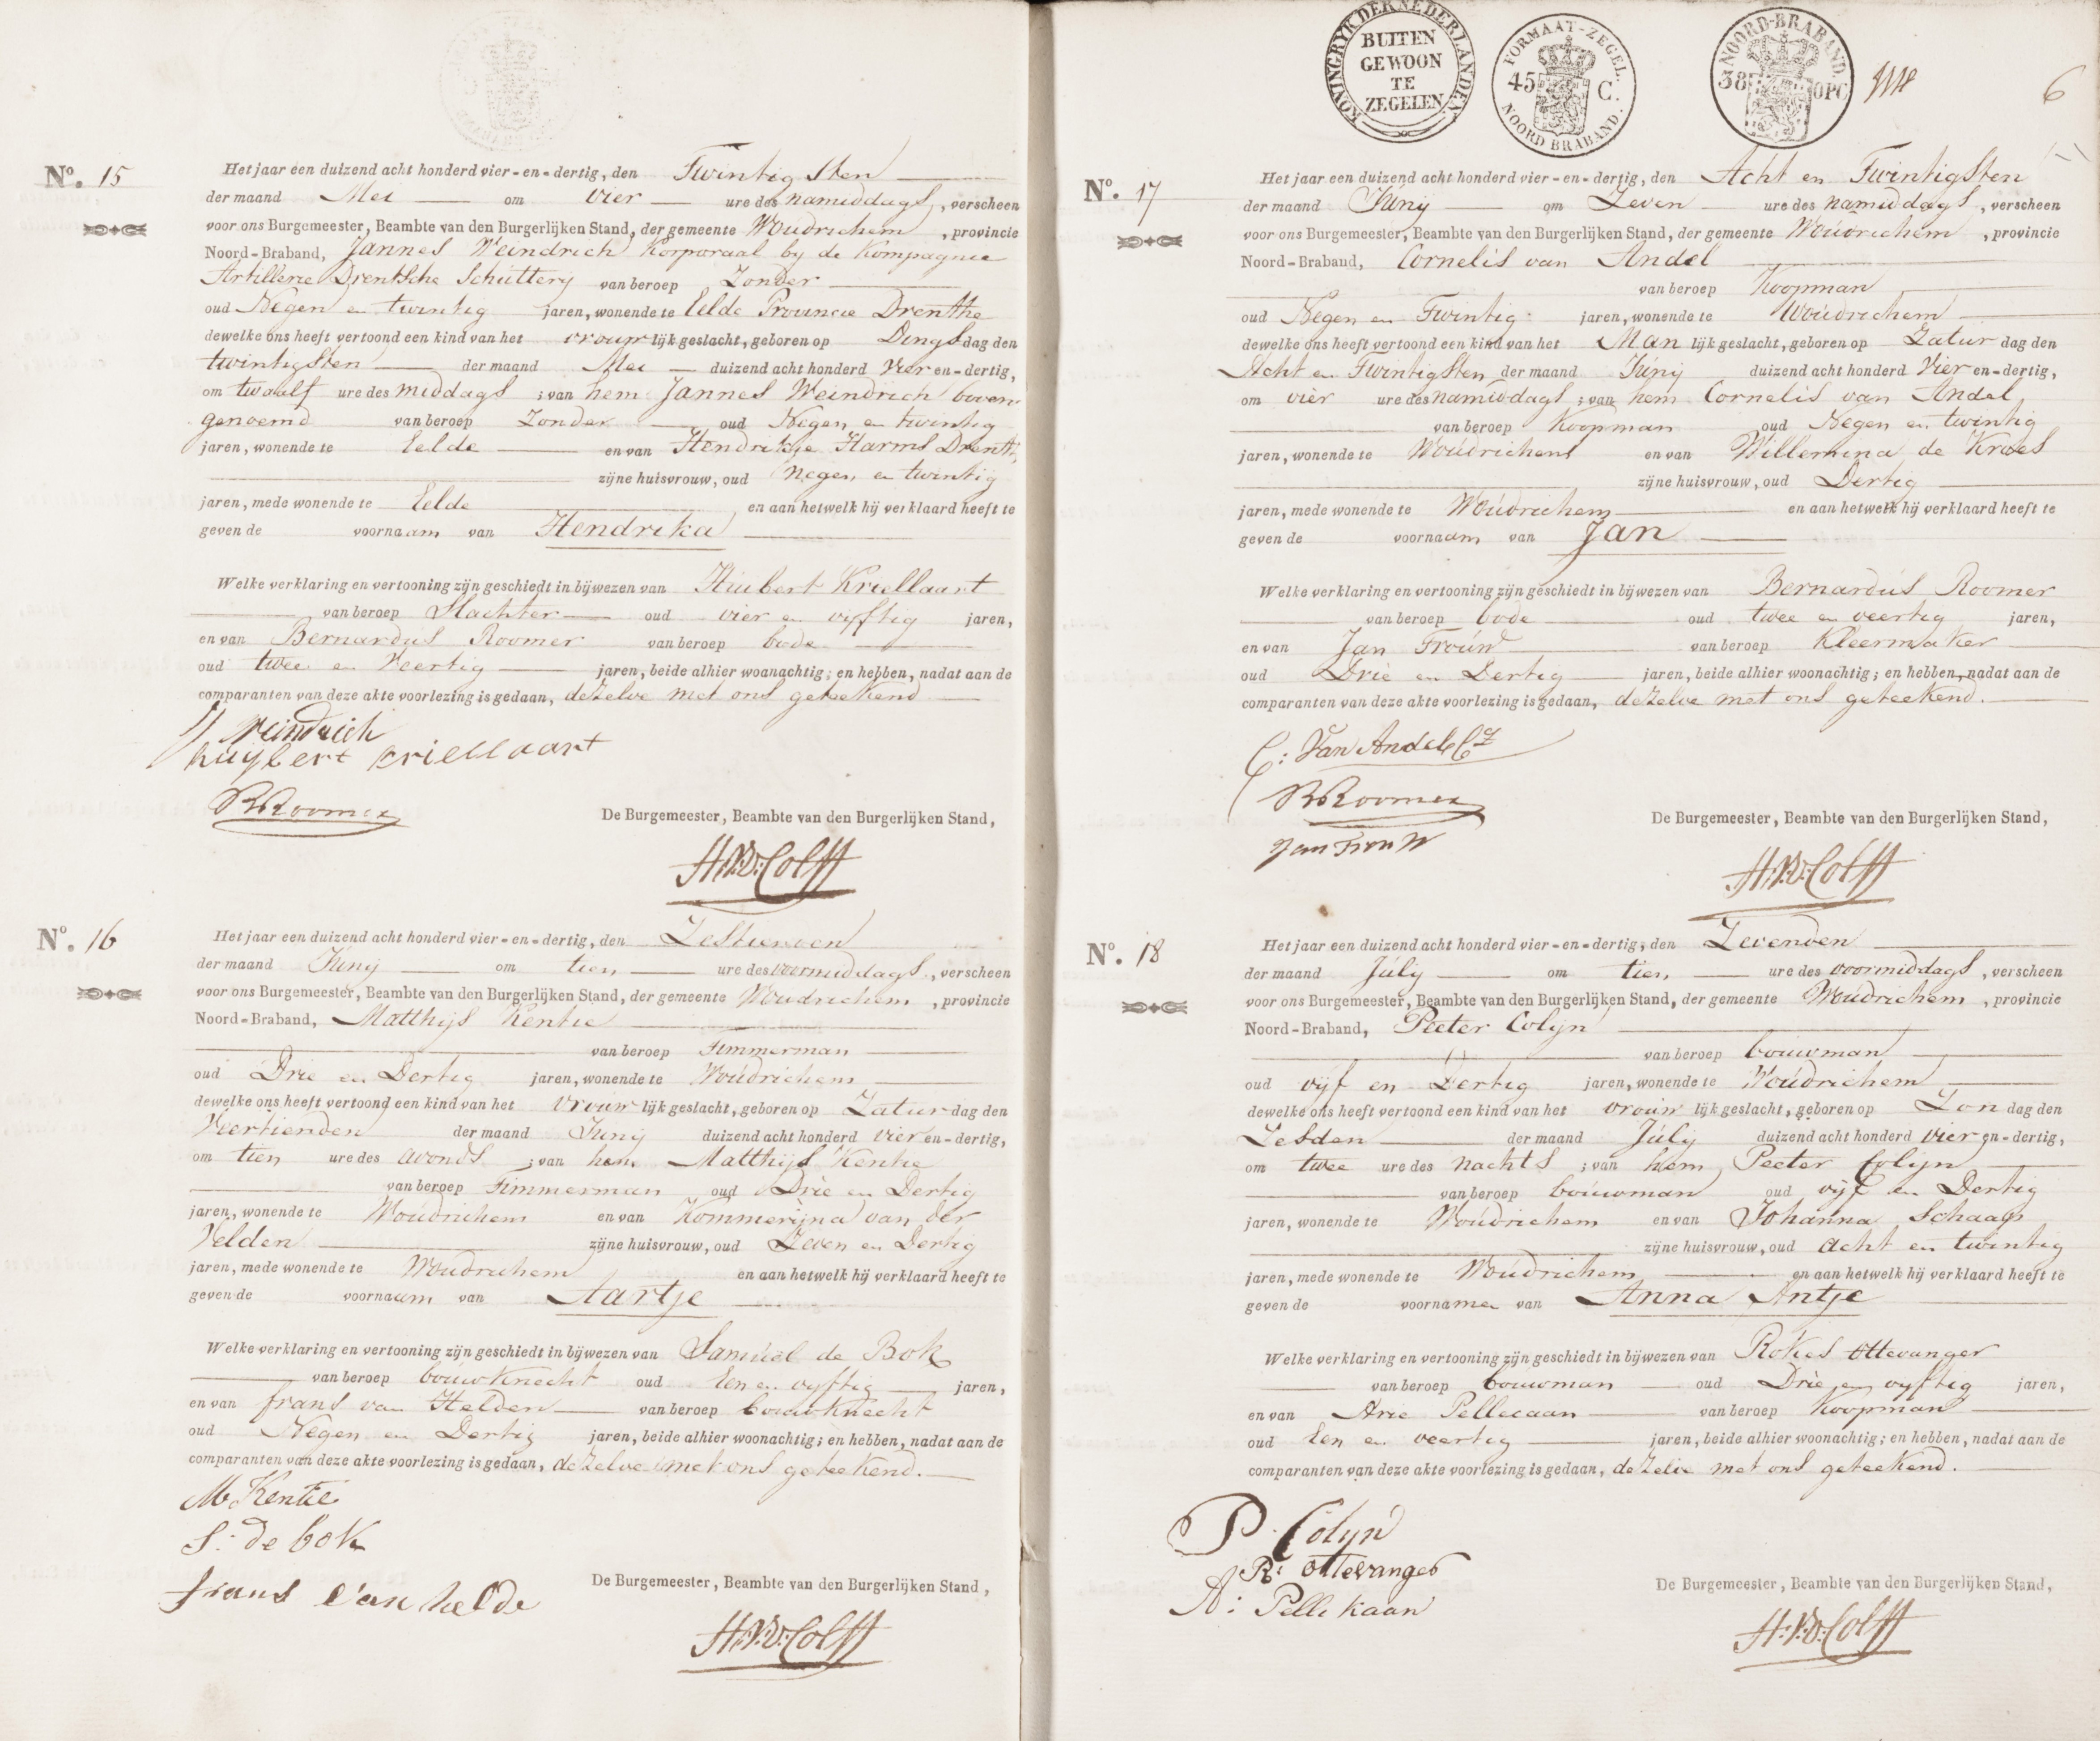 Nº. 15
Het jaar een duizend acht honderd vier-en-dertig, den Twintigsten
der maand Mei om vier ure des namiddags, verscheen
voor ons Burgemeester, Beambte van den Burgerlijken Stand, der gemeente Woudrichem, provincie
Noord-Braband, Jannes Weindrich Korporaal by de Kompagnie
Artillerie Drentsche Schuttery van beroep Zonder
oud Negen en twintig jaren, wonende te Eelde Provincie Drenthe
dewelke ons heeft vertoond een kind van het vrouwlijk geslacht, geboren op Dingsdag den
twintigsten der maand Mei duizend acht honderd Vier en-dertig,
om twaalf ure des middags ; van hem Jannes Weindrich boven
genoemd van beroep Zonder oud Negen en twintig
jaren, wonende te Eelde en van Hendrikje Harms Drenth,
zijne huisvrouw, oud Negen en twintig
jaren, mede wonende te Eelde en aan hetwelk hij verklaard heeft te
geven de voornaam van Hendrika
Welke verklaring en vertooning zijn geschiedt in bijwezen van Huibert Kriellaart
van beroep Slachter oud vier en vyftig jaren,
en van Bernardus Roomer van beroep bode
oud twee en Veertig jaren, beide alhier woonachtig; en hebben, nadat aan de
comparanten van deze akte voorlezing is gedaan, dezelve met ons geteekend
J Weindrich
huybert kriellaart
B Roomer
De Burgemeester, Beambte van den Burgerlijken Stand,
H.V.D. Colff
Nº. 16
Het jaar een duizend acht honderd vier-en-dertig, den Zestienden
der maand Juny om tien ure des voormiddags, verscheen
voor ons Burgemeester, Beambte van den Burgerlijken Stand, der gemeente Woudrichem, provincie
Noord-Braband, Matthijs Kentie
van beroep Timmerman
oud Drie en Dertig jaren, wonende te Woudrichem
dewelke ons heeft vertoond een kind van het vrouwlijk geslacht, geboren op Zaturdag den
Veertienden der maand Juny duizend acht honderd vier en-dertig,
om tien ure des avonds ; van hem Matthijs Kentie
van beroep Timmerman oud Drie en Dertig
jaren, wonende te Woudrichem en van Kommerijna van der
Velden zijne huisvrouw, oud Zeven en Dertig
jaren, mede wonende te Woudrichem en aan hetwelk hij verklaard heeft te
geven de voornaam van Aartje
Welke verklaring en vertooning zijn geschiedt in bijwezen van Samuel de Bok
van beroep bouwknecht oud Een en vyftig jaren,
en van frans van Helden van beroep bouwknecht
oud Negen en Dertig jaren, beide alhier woonachtig; en hebben, nadat aan de
comparanten van deze akte voorlezing is gedaan, dezelve met ons geteekend.
M Kentie
S: de bok
frans van helde
De Burgemeester, Beambte van den Burgerlijken Stand,
H.V.D. Colff
KONINGRYK DER NEDERLANDEN
BUITEN
GEWOON
TE
ZEGELEN
FORMAAT-ZEGEL.
45 C.
NOORD BRABAND.
NOORD-BRABAND.
38 OPC
6
Nº. 17
Het jaar een duizend acht honderd vier-en-dertig, den Acht en Twintigsten
der maand Juny om Zeven ure des namiddags, verscheen
voor ons Burgemeester, Beambte van den Burgerlijken Stand, der gemeente Woudrichem, provincie
Noord-Braband, Cornelis van Andel
van beroep Koopman
oud Negen en Twintig jaren, wonende te Woudrichem
dewelke ons heeft vertoond een kind van het Man lijk geslacht, geboren op Zatur dag den
Acht en Twintigsten der maand Juny duizend acht honderd Vier en-dertig,
om vier ure des namiddags ; van hem Cornelis van Andel
van beroep Koopman oud Negen en twintig
jaren, wonende te Woudrichem en van Willemina de Kroes
zijne huisvrouw, oud Dertig
jaren, mede wonende te Woudrichem en aan hetwelk hij verklaard heeft te
geven de voornaam van Jan
Welke verklaring en vertooning zijn geschiedt in bijwezen van Bernardus Roomer
van beroep bode oud twee en veertig jaren,
en van Jan Trouw van beroep Kleermaker
oud Drie en Dertig jaren, beide alhier woonachtig; en hebben, nadat aan de
comparanten van deze akte voorlezing is gedaan, dezelve met ons geteekend.
C: Van Andel Cz
B Roomer
Jan Trouw
De Burgemeester, Beambte van den Burgerlijken Stand,
H.V.D. Colff
Nº. 18
Het jaar een duizend acht honderd vier-en-dertig, den Zevenden
der maand July om tien ure des voormiddags, verscheen
voor ons Burgemeester, Beambte van den Burgerlijken Stand, der gemeente Woudrichem, provincie
Noord-Braband, Peeter Colijn
van beroep bouwman
oud vijf en Dertig jaren, wonende te Woudrichem
dewelke ons heeft vertoond een kind van het vrouw lijk geslacht, geboren op Zon dag den
Zesden der maand July duizend acht honderd vier en-dertig,
om twee ure des nachts ; van hem Peeter Colijn
van beroep bouwman oud vijf en Dertig
jaren, wonende te Woudrichem en van Johanna Schaap
zijne huisvrouw, oud acht en twintig
jaren, mede wonende te Woudrichem en aan hetwelk hij verklaard heeft te
geven de voornamen van Anna Antje
Welke verklaring en vertooning zijn geschiedt in bijwezen van Rokus Ottevanger
van beroep bouwman oud Drie en vyftig jaren,
en van Arie Pellecaan van beroep Koopman
oud Een en veertig jaren, beide alhier woonachtig; en hebben, nadat aan de
comparanten van deze akte voorlezing is gedaan, dezelve met ons geteekend.
P. Colyn
R: ottevanger
A: Pellekaan
De Burgemeester, Beambte van den Burgerlijken Stand,
H.V.D. Colff